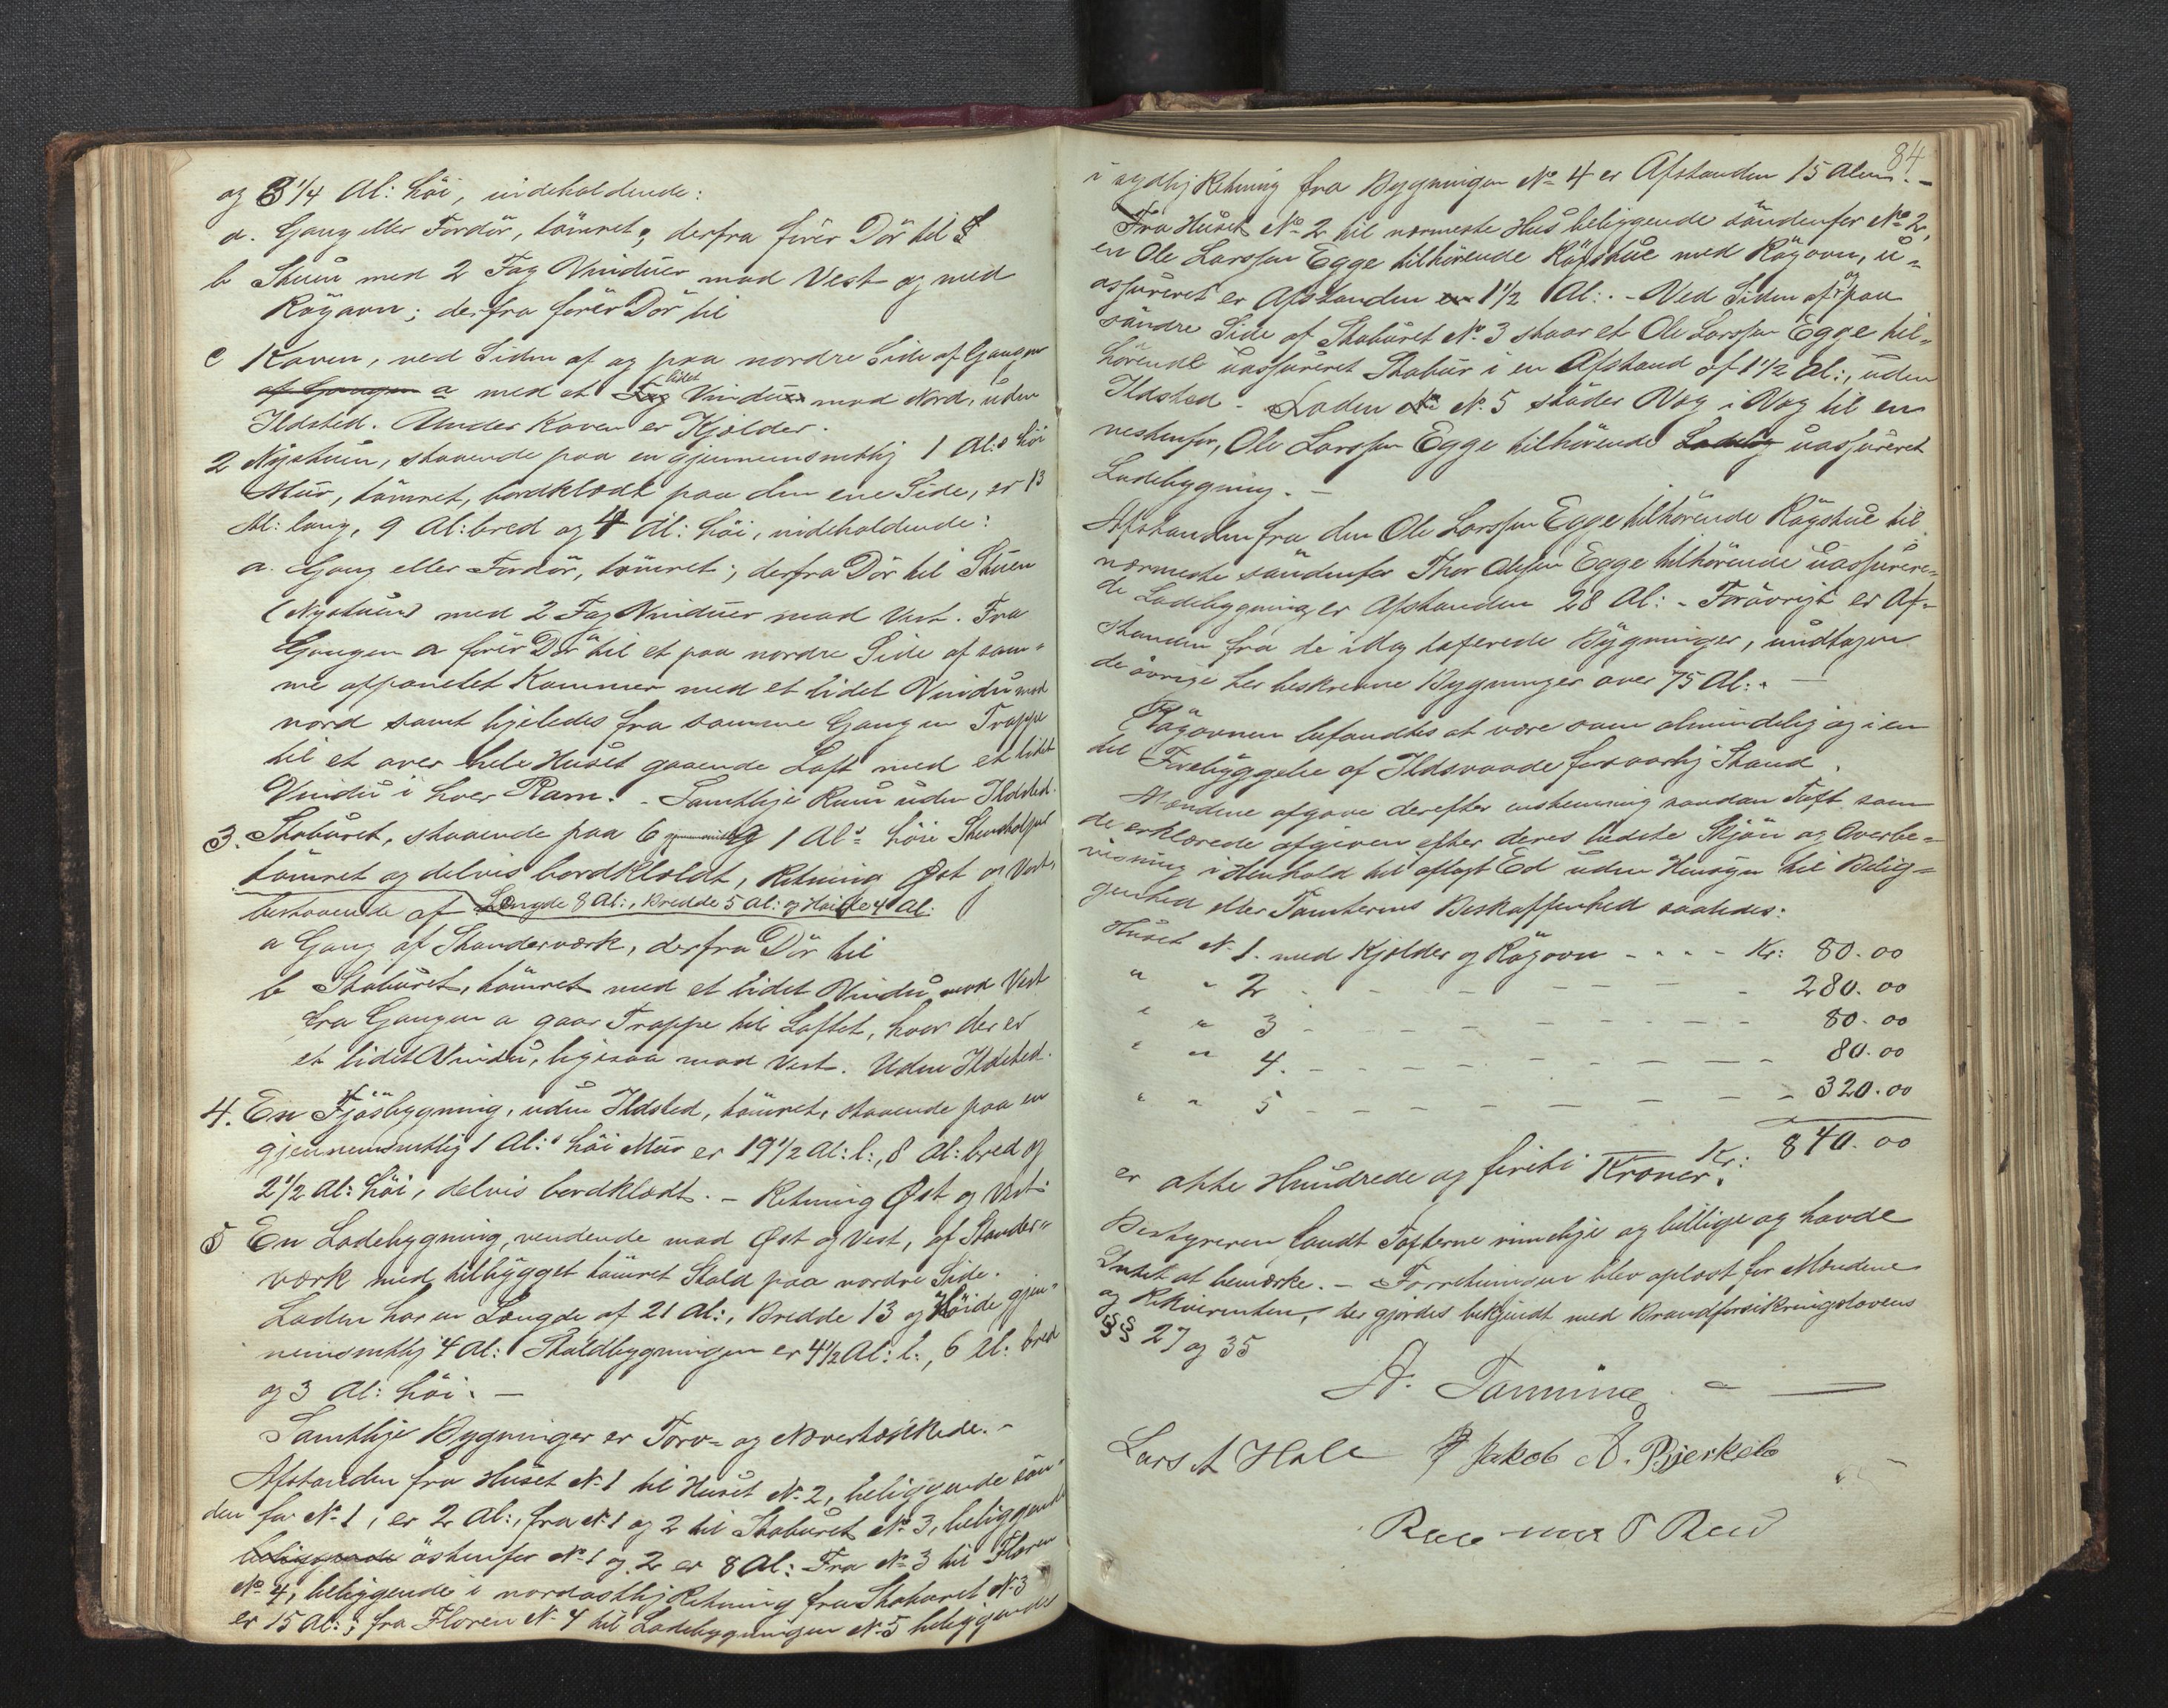 og 3 1/4 Al: höi, indeholdende:
a. Gang eller Fordör, tömret, derfra fører Dör til
b Stuen med 2 Fag Vinduer mod Vest og med
Rögovn; derfra fører Dör til
c Koven, ved Siden af og paa nordre Side af Gangen
af Gangen a med et lidet Fag Vindue mod Nord, uden
Ildsted. Under Koven er Kjelder.
2 Nystuen, staaende paa en gjennemsnitlig 1 Al:s höi
Mur, tömret, bordklædt paa den ene Side, er 13
Al: lang, 9 Al: bred og 4 Al: höi, indeholdende:
a. Gang eller Fordör, tömret; derfra Dör til Stuen
(Nystuen) med 2 Fag Vinduer mod Vest. Fra
Gangen a fører Dör til et paa nordre Side af sam-
me afpanelet Kammer med et lidet Vindu mod
nord samt ligeledes fra samme Gang en Trappe
til et over hele Huset gaaende Loft med et lidet
Vindu i hver Ram. - Samtlige Rum uden Ildsted.
3. Staburet, staaende paa 6 gjennemsnitlig 1 Al:s höie Stenstolper
tömret og delvis bordklædt, Retning Øst og Vest,
bestaaende af Længde 8 Al:, Bredde 5 Al: og Høide 4 Al:
a Gang af Standerværk, derfra Dör til
b Staburet, tömret med et lidet Vindu mod Vest
fra Gangen a gaar Trappe til Loftet, hvor der er
et lidet Vindu, ligesaa mod Vest. Uden Ildsted.
4. En Fjösbygning, uden Ildsted, tömret, staaende paa en
gjennemsnitlig 1 Al:s höi Mur er 19 1/2 Al: l:, 8 Al: bred og
2 1/2 Al: höi, delvis bordklædt. - Retning Øst og Vest.
5 En Ladebygning, vendende mod Øst og Vest, af Stander-
værk med tilbygget tömret Stald paa nordre Side.
Laden har en Længde af 21 Al:, Bredde 13 og Höide gjen-
nemsnitlig 4 Al: Staldbygningen er 4 1/2 Al: l:, 6 Al: bred
og 3 Al: höi. -
Samtlige Bygninger er Torv- og Nævertækkede. -
Afstanden fra Huset No 1 til Huset No 2, beliggende sön-
den for No 1, er 2 Al:, fra No 1 og 2 til Staburet No 3, beliggende
beliggende östenfor No 1 og 2 er 8 Al: Fra No 3 til Floren
No 4, beliggende i nordostlig Retning fra Staburet No 3
er 15 Al:; fra Floren No 4 til Ladebygningen No 5 beliggende
84
i sydlig Retning fra Bygningen No 4 er Afstanden 15 Alen. -
Fra Huset No 2 til nærmeste Hus beliggende söndenfor No 2,
en Ole Larssen Egge tilhörende Rögstue med Rögovn, u-
assureret er Afstanden er 1 1/2 Al:. - Ved Siden af og paa
söndre Side af Staburet No 3 staar et Ole Larssen Egge til-
hörende uassureret Stabur i en Afstand af 1 1/2 Al:, uden
Ildsted - Laden No 5 stöder Væg i Væg til en
vestenfor, Ole Larssen Egge tilhörende uassureret
Ladebygning. -
Afstanden fra den Ole Larssen Egge tilhörende Rögstue til
nærmeste söndenfor Thor Olsen Egge tilhörende uassurere-
de Ladebygning er Afstanden 28 Al: - Forövrigt er Af-
standen fra de idag taxerede Bygninger, undtagen
de övrige her beskrevne Bygninger over 75 Al:. -
Rögovnen befandtes at være som almindelig og i en
til Forebyggelse af Ildsvaade forsvarlig Stand.
Mændene afgave derefter enstemmig saadan Taxt som
de erklærede afgiven efter deres bedste Skjön og Overbe-
visning i Henhold til aflagt Ed uden Hensyn til Belig-
genhed eller Tomternes Beskaffenhed saaledes:
Huset No 1. med Kjelder og Rögovn - - - - Kr: 80.00
" " 2 - - - - - - - 280.00
" " 3 - - - - - - - 80.00
" " 4. - - - - - - - 80.00
" " 5 - - - - - - - 320.00
Kr: 840.00
er otte Hundrede og firti Kroner.
Bestyreren fandt Taxterne rimelige og billige og havde
Intet at bemærke. - Forretningen blev oplæst for Mændene
og Rekvirenten, der gjordes bekjendt med Brandforsikringslovens
§§ 27 og 35
A. Tanning
Lars A Hole Jakob A. Bjerkelo